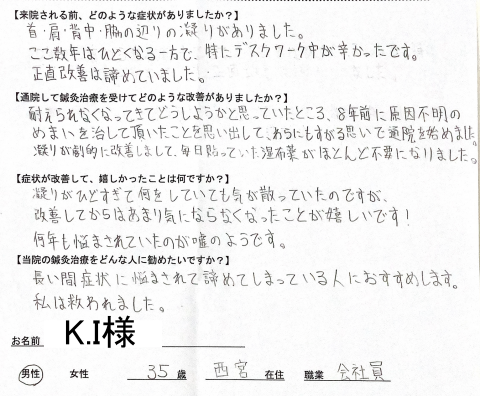 【来院される前、どのような症状がありましたか？】
首・肩・背中・脇の辺りの凝りがありました。
ここ数年はひどくなる一方で、特にデスクワーク中が辛かったです。
正直改善は諦めていました。
【通院して鍼灸治療を受けてどのような改善がありましたか？】
耐えられなくなってきてどうしようかと思っていたところ、8年前に原因不明の
めまいを治して頂いたことを思い出して、わらにもすがる思いで通院を始めました。
凝りが劇的に改善しまして、毎日貼っていた湿布薬がほとんど不要になりました。
【症状が改善して、嬉しかったことは何ですか？】
凝りがひどすぎて何をしていても気が散っていたのですが、
改善してからはあまり気にならなくなったことが嬉しいです！
何年も悩まされていたのが嘘のようです。
【当院の鍼灸治療をどんな人に勧めたいですか？】
長い間症状に悩まされて諦めてしまっている人におすすめします。
私は救われました。
お名前 K.I様
男性 女性 35歳 西宮在住 職業 会社員